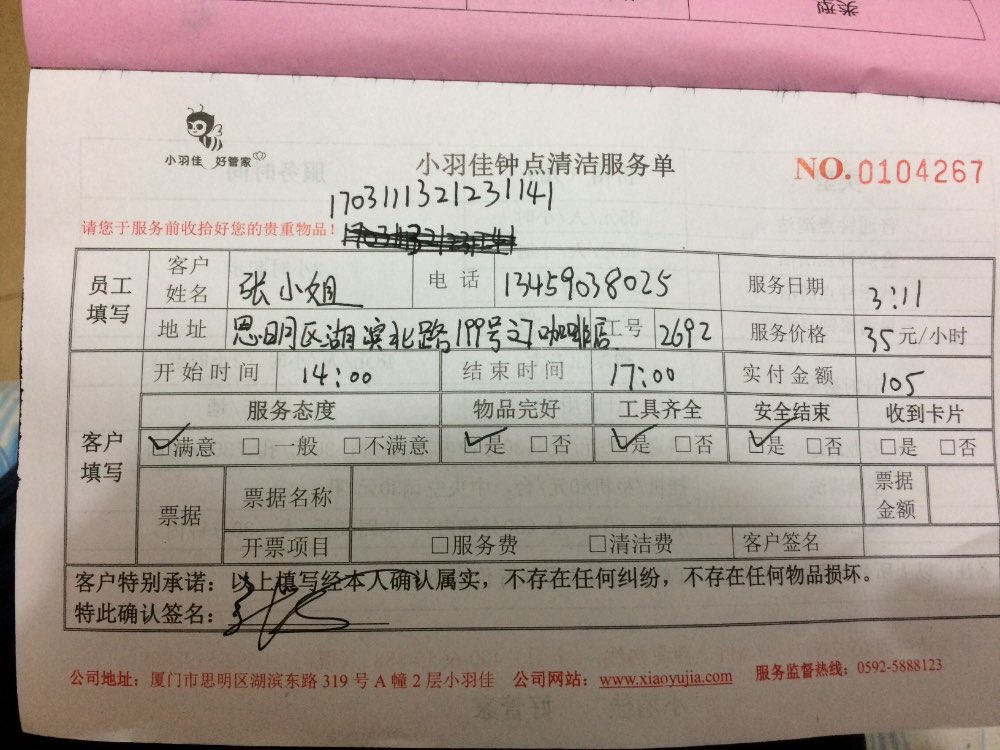 类型
小羽佳 好管家
小羽佳钟点清洁服务单
NO.0104267
1703111321231141
请您于服务前收拾好您的贵重物品!
员工填写
客户姓名 张小姐 电话 13459038025 服务日期 3:11
地址 思明区湖滨北路199号 咖啡店 工号 2692 服务价格 35元/小时
客户填写
开始时间 14:00 结束时间 17:00 实付金额 105
服务态度 物品完好 工具齐全 安全结束 收到卡片
☑满意 □一般 □不满意 ☑是 □否 ☑是 □否 ☑是 □否 □是 □否
票据 票据名称 票据金额
开票项目 □服务费 □清洁费 客户签名
客户特别承诺:以上填写经本人确认属实,不存在任何纠纷,不存在任何物品损坏。
特此确认签名:
公司地址:厦门市思明区湖滨东路319号A幢2层小羽佳 公司网站:www.xiaoyujia.com 服务监督热线:0592-5888123